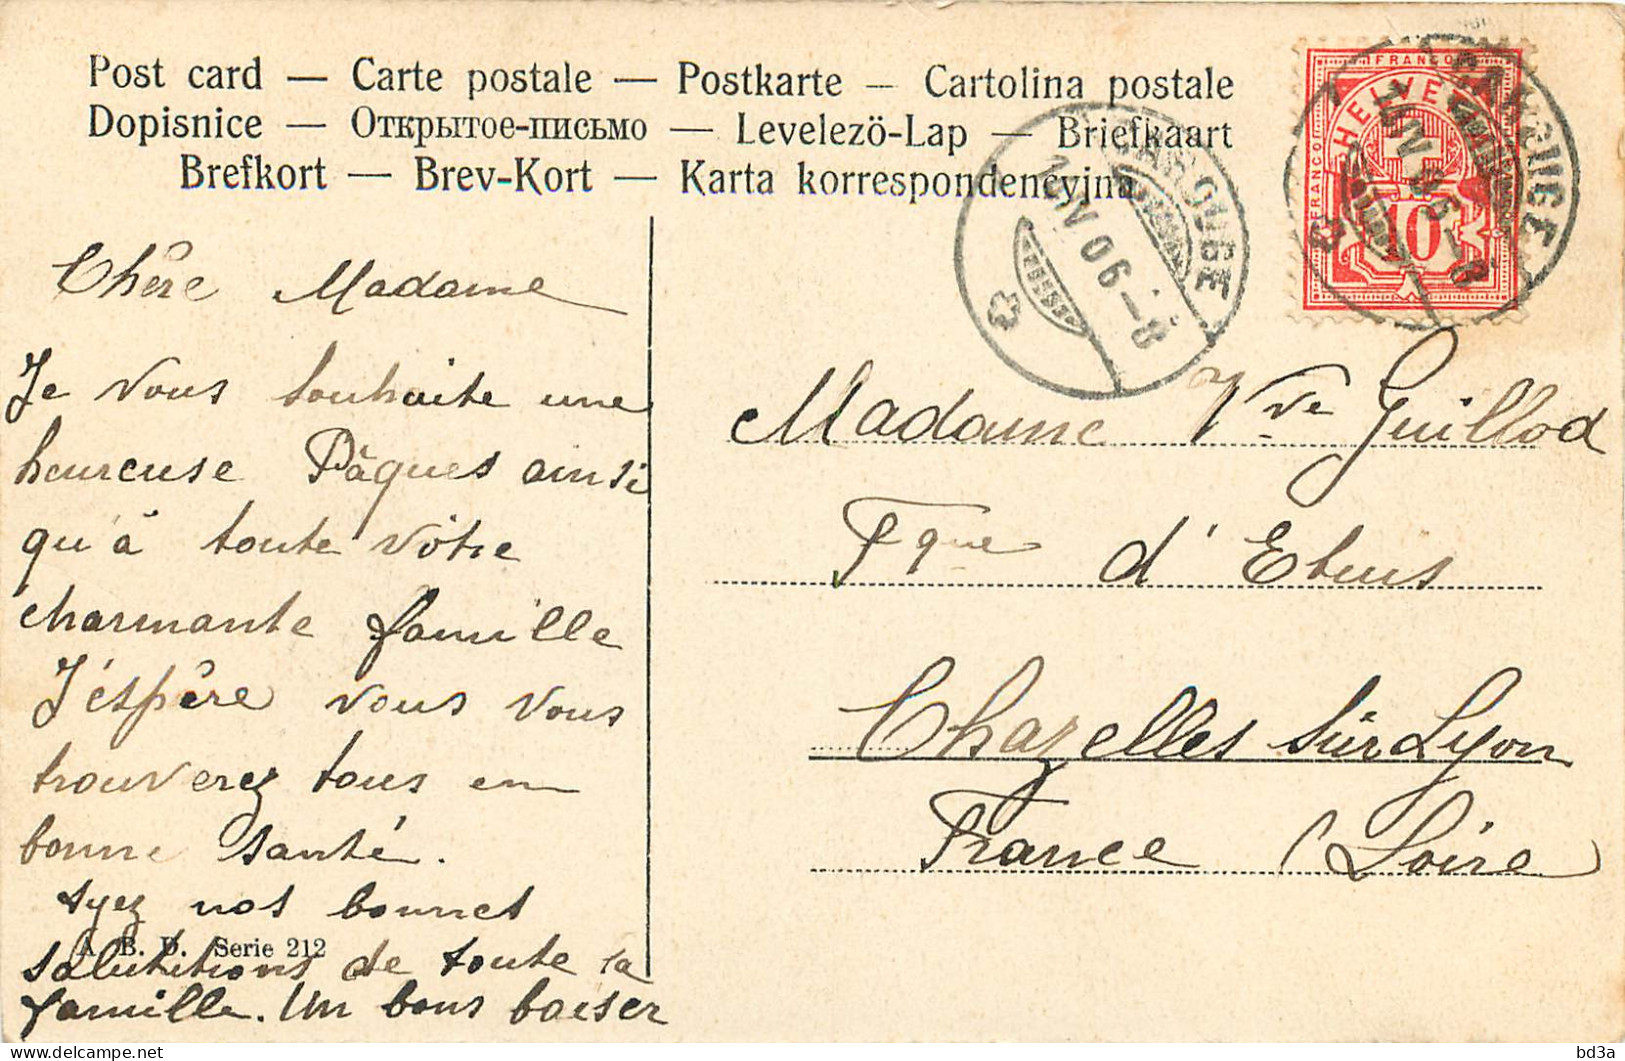 Post card — Carte postale — Postkarte — Cartolina postale
Dopisnice — Открытое-письмо — Levelezö-Lap — Briefkaart
Brefkort — Brev-Kort — Karta korrespondencyjna
FRANCO
HELVE
FRANCO
10
CAROUGE
15 IV 06 — 8
CAROUGE
15 IV 06 — 8
Chère Madame
Je vous souhaite une
heureuse Pâques ainsi
qu'à toute vôtre
charmante famille
J'éspère vous vous
trouverez tous en
bonne santé.
nos bonnes
salutitions de toute la
famille. Un bons baiser
A. B. D. Serie 212
Madame Vve Guillod
Fque d'Etuis
Chazelles sur Lyon
France (Loire
bd3a